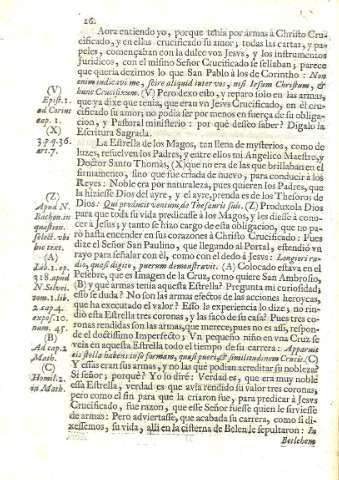 26.
Aora entiendo yo, porque tenis por armas à Christo Cru-
cificado, y en ellas crucificado su amor; todas las cartas, y pa-
peles, començaban con la dulce voz Jesvs, y los instrumentos
Juridicos, con el mismo Señor Crucificado se sellaban, parece
que queria dezirnos lo que San Pablo à los de Corintho: Non
enim iudicavi me, scire aliquid inter vos, nisi Iesum Christum, &
hunc Crucifixum. (V) Pero dexo esto, y reparo solo en las armas,
que ya dixe que tenia, que eran vn Jesvs Crucificado, en èl cru-
cificado su amor, no podia ser por menos en fuerça de su obliga-
cion, y Pastoral ministerio: por què deseo saber? Digalo la
Escritura Sagrada.
La Estrella de los Magos, tan llena de mysterios, como de
luzes, resuelven los Padres, y entre ellos mi Angelico Maestro, y
Doctor Santo Thomàs, (X) que no era de las que brillaban en el
firmamento, sino que fue criada de nuevo, para conducir à los
Reyes: Noble era por naturaleza, pues quieren los Padres, que
la hiziesse Dios del ayre, y el ayre, prenda es de los Thesoros de
Dios: Qui producit ventum de Thesauris suis. (Z) Produxola Dios
para que toda su vida predicasse à los Magos, y les diesse à cono-
cer à Jesvs, y tanto se hizo cargo de esta obligacion, que no pa-
rò hasta encender en sus coraçones à Christo Crucificado: Pues
dize el Señor San Paulino, que llegando al Portal, estendió vn
rayo para señalar con èl, como con el dedo à Jesvs: Longiori ra-
dio, quasi digito, puerum demonstravit. (A) Colocado estava en el
Pesebre, que es Imagen de la Cruz, como quiere San Ambrosio,
(B) y què armas tenia aquesta Estrella? Pregunta mi curiosidad;
esso se duda? No son las armas efectos de las acciones heroycas,
que ha executado el valor? Esso la experiencia lo dize, no rin-
diò esta Estrella tres coronas, y las hizo de su casa? Pues tres co-
ronas rendidas son las armas, que merece; pues no es assi, respon-
de el doctissimo Imperfecto; Vn pequeño niño en vna Cruz se
veia en aquesta Estrella todo el tiempo de su carrera: Apparuit
eis stella habens in se formam, quasi pueri, & similitudinem Crucis. (C)
Y essas eran sus armas, y no las que podian acreditar su nobleza?
Si señor; porquè? Yo lo dirè: Verdad es, que era muy noble
essa Estrella, verdad es que avia rendido su valor tres coronas,
pero como el fin para que la criaron fue, para predicar à Jesvs
Crucificado, fue razon, que esse Señor fuesse quien le sirviesse
de armas: Pero adviertasse, que acabada su carrera, como si di-
xessemos, su vida, alli en la cisterna de Belen le sepultaron: In
Betlehem
(V)
Epist. 1.
ad Corint
cap. 1.
(X)
3. p. q. 36.
art. 7.
(Z)
Apud N.
in
question.
select. vbi
dic text.
(A)
Lib. 1. ep.
(B)
Ad cap. 2
Math.
(C)
Homil. 2.
in Math.